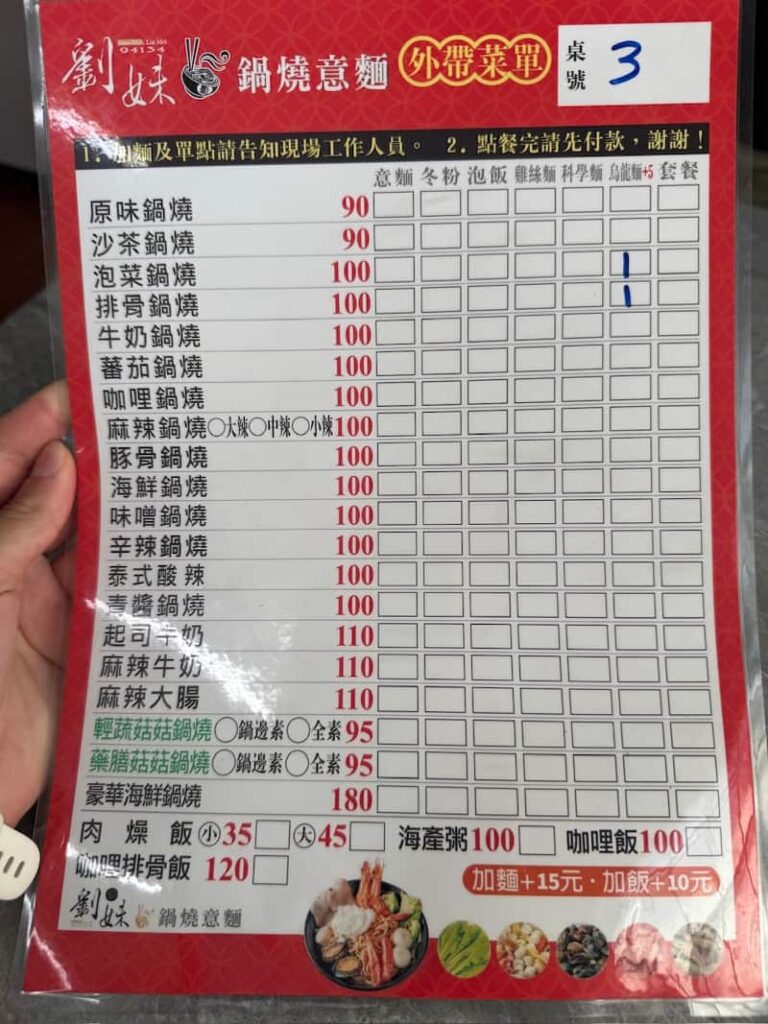 劉妹 鍋燒意麵 外帶菜單 桌號 3
04154
1. 加麵及單點請告知現場工作人員。 2. 點餐完請先付款，謝謝！
意麵 冬粉 泡飯 雞絲麵 科學麵 烏龍麵+5 套餐
原味鍋燒 90
沙茶鍋燒 90
泡菜鍋燒 100 1
排骨鍋燒 100 1
牛奶鍋燒 100
蕃茄鍋燒 100
咖哩鍋燒 100
麻辣鍋燒○大辣○中辣○小辣100
豚骨鍋燒 100
海鮮鍋燒 100
味噌鍋燒 100
辛辣鍋燒 100
泰式酸辣 100
青醬鍋燒 100
起司牛奶 110
麻辣牛奶 110
麻辣大腸 110
輕蔬菇菇鍋燒○鍋邊素○全素 95
藥膳菇菇鍋燒○鍋邊素○全素 95
豪華海鮮鍋燒 180
肉燥飯 小35 大45 海產粥100 咖哩飯100
咖哩排骨飯 120
加麵+15元·加飯+10元
劉妹 鍋燒意麵